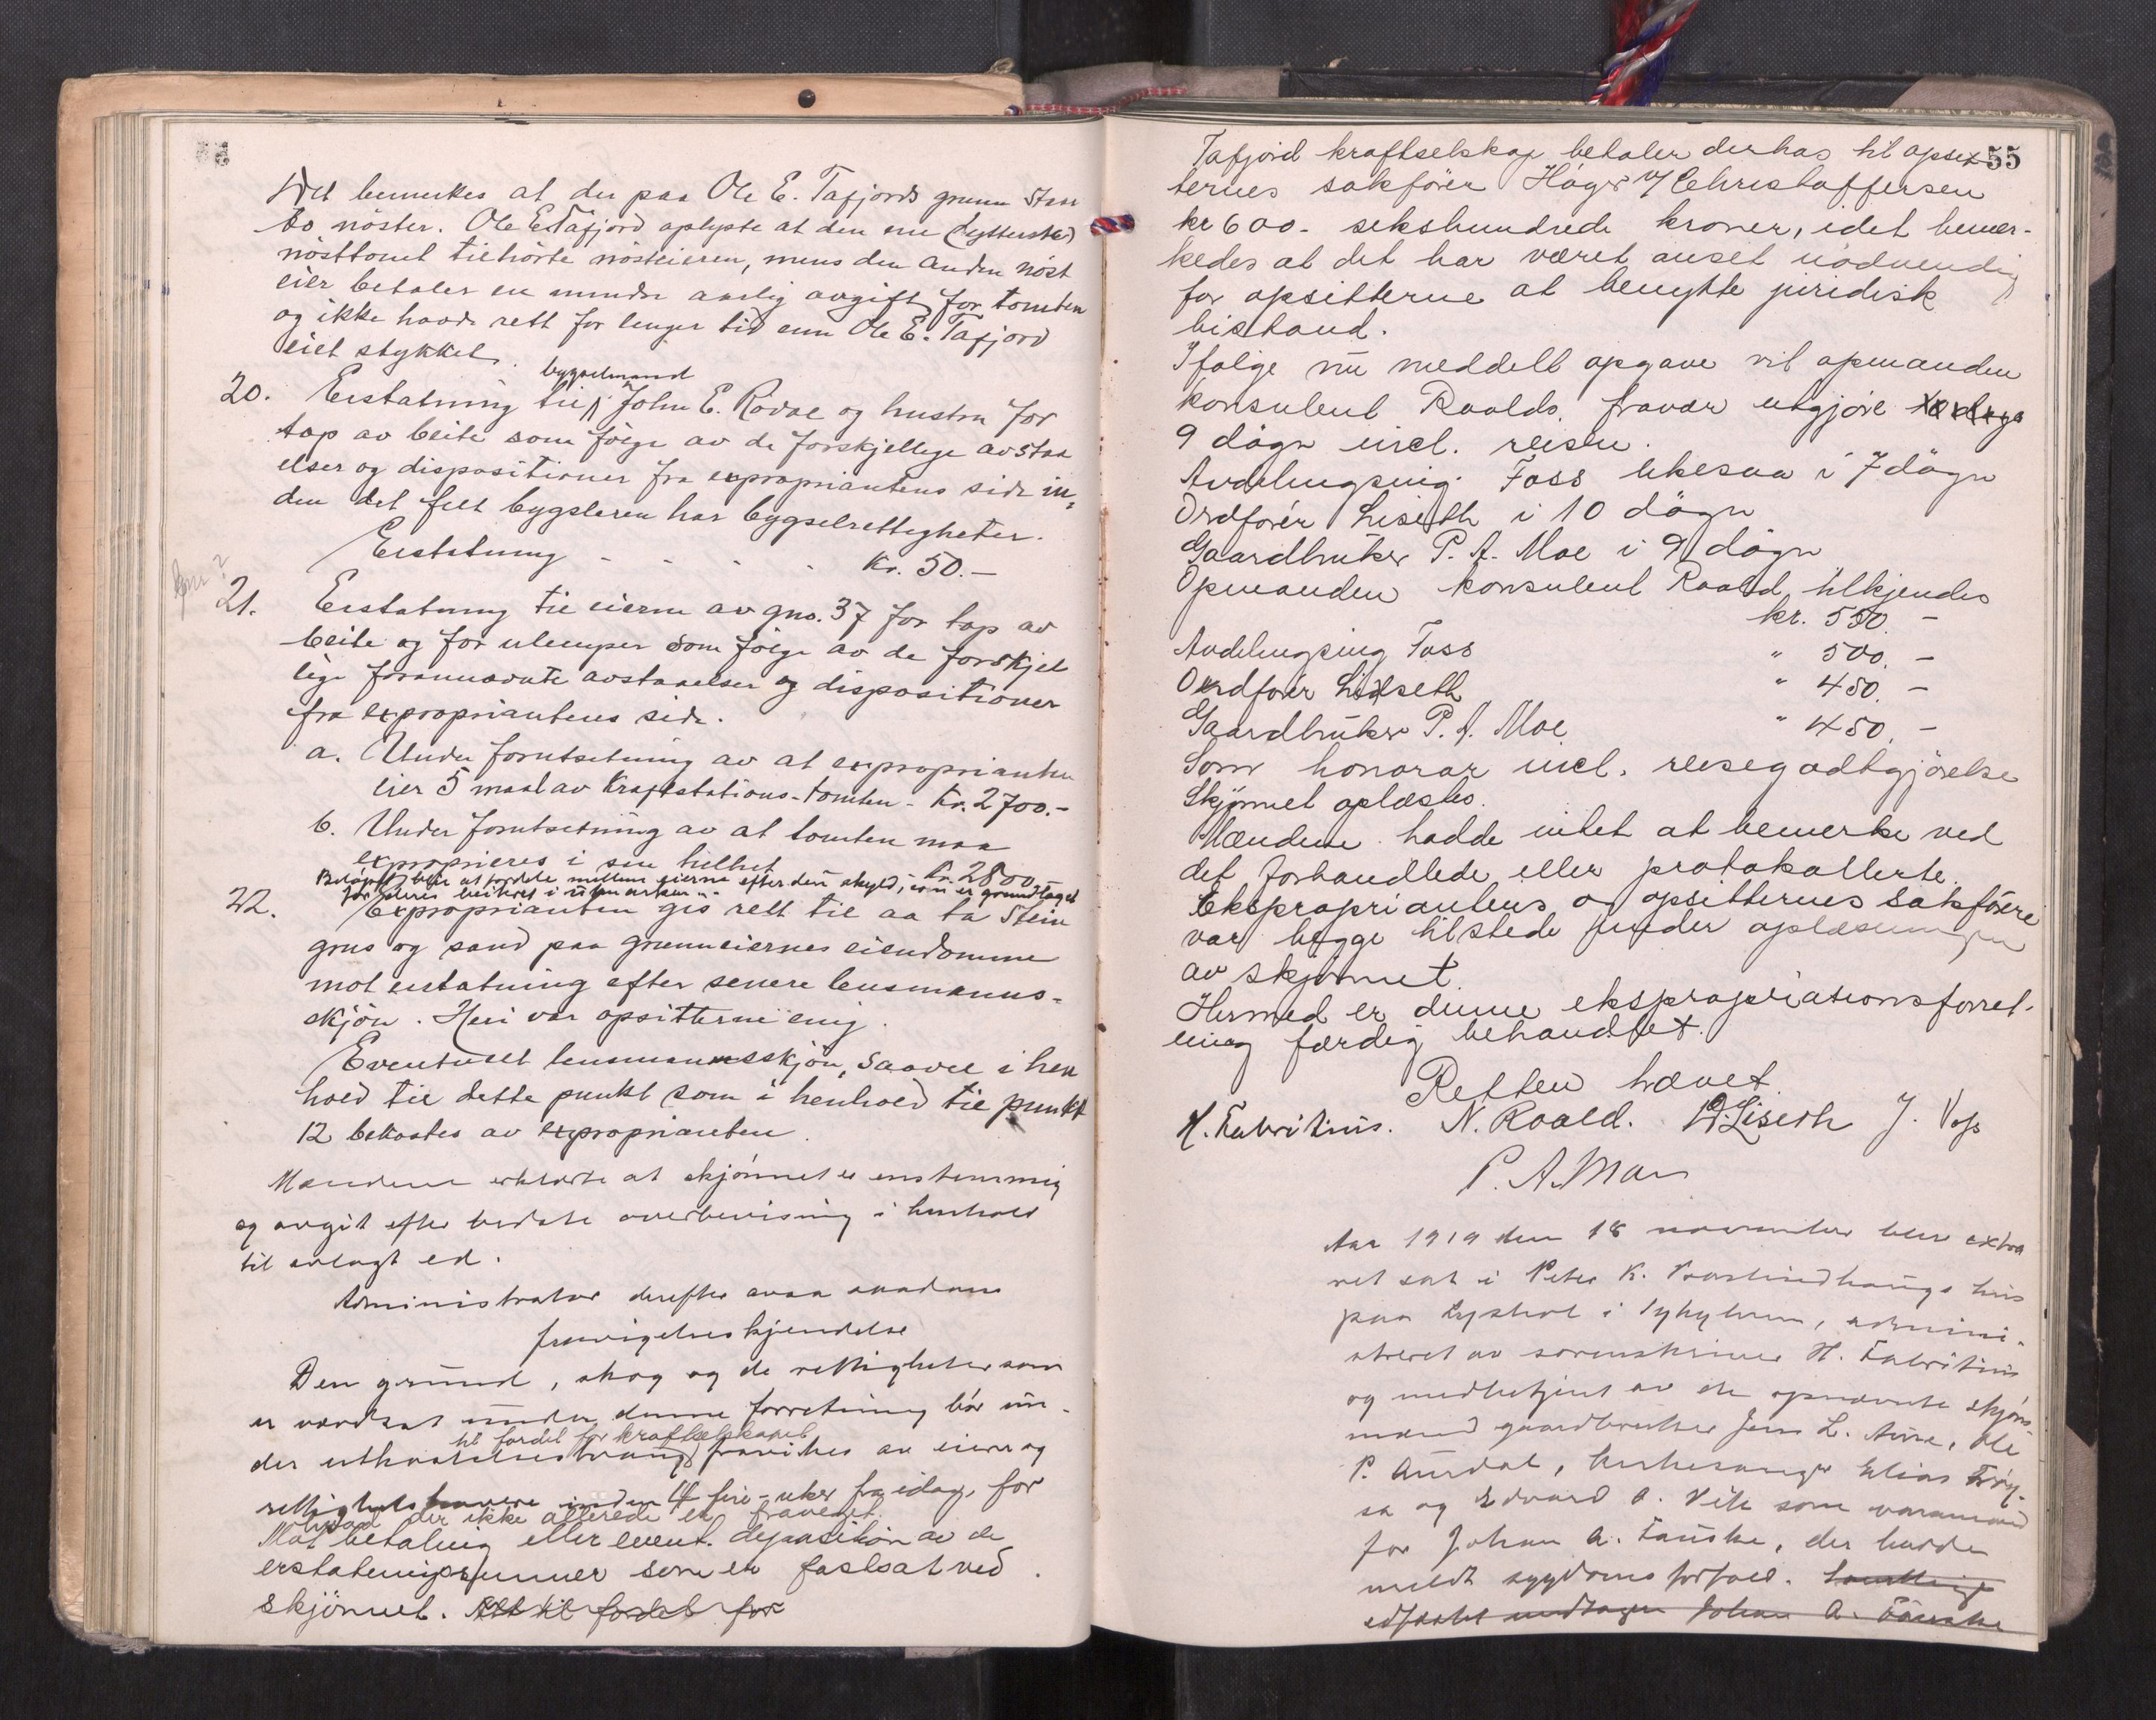 Det bemerkes at der paa Ole E. Tafjords grunn staar
to nöster. Ole E. Tafjord oplyste at den ene (ytterste)
nösttomt tilhörte nösteieren, mens den anden nöst
eier betaler en mindre aarlig avgift for tomten
og ikke havde rett for lenger tid enn Ole E. Tafjord
eiet stykket.
bygselmand
20. Erstatning til John E. Rödal og hustru for
tap av beite som fölge av de forskjellige avstaa
elser og dispositioner fra expropriantens side in-
den det felt bygsleren har bygselrettigheter.
Erstatning - - - - Kr. 50.-
21. Erstatning til eierne av gno. 37 for tap av
beite og for ulemper som fölge av de forskjel
lige forannævnte avstaaelser og dispositioner
fra expropriantens side.
a. Under forutsetning av at exproprianten
eier 5 maal av Kraftstations-tomten - Kr. 2700.-
b. Under forutsetning av at tomten maa
exproprieres i sin helhet Kr. 2800
Belöpet blir at fordele mellem eierne efter den skyld, som er grundlaget
for deres beitret i utmarken.
22. Exproprianten gis rett til aa ta stein
grus og sand paa grunneiernes eiendomme
mot erstatning efter senere lensmanns-
skjön. Heri var opsitterne enig.
Eventuelt lensmannsskjön, saavel i hen
hold til dette punkt som i henhold til punkt
12 bekostes av exproprianten.
Mændene erklærte at skjönnet er enstemmig
og avgit efter bedste overbevisning i henhold
til avlagt ed.
Administrator derefter avsa saadan
fravigelseskjendelse
Den grund, skog og de rettigheter som
er værdsat under denne forretning bör un-
til fordel for kraftselskapet
der utkastelsestvang fravikes av eiere og
rettighetshavere inden 4 fire - uker fra idag, for
hvad der ikke allerede er fraveket.
Mot betaling eller event. deposition av de
erstatningssummer som er fastsat ved
skjönnet. Alt til fordel for
55
Tafjord kraftselskap betaler derhos til opsit
ternes sakförer Högr v/ Christoffersen
kr 600.- sekshundrede kroner, idet bemer-
kedes at det har været anset nödvendig
for opsitterne at benytte juridisk
bistand.
Ifölge nu meddelt opgave vil opmanden
konsulent Roalds fravær utgjöre
9 dögn incl. reisen.
Avdelingsing. Foss likesaa i 7 dögn
Ordförer Liseth i 10 dögn
Gaardbruker P. A. Moe i 9 dögn
Opmanden konsulent Roald tilkjendes
kr. 550.-
Avdelingsing Foss " 500.-
Ordförer Liseth " 450.-
Gaardbruker P. A. Moe " 450.-
Som honorar incl. reisegodtgjörelse
Skjönnet oplæstes.
Mændene hadde intet at bemerke ved
det forhandlede eller protokollerte.
Ekspropriantens og opsitternes sakförere
var begge tilstede under oplæsningen
av skjönnet.
Hermed er denne ekspropriationsforret-
ning færdig behandlet.
Retten hævet.
H. Fabritius. N. Roald. O. Liseth J. Foss
P. A. Moe
Aar 1919 den 18 november blev extra
ret sat i Peter K. hus
paa i Sykylven, admini-
streret av sorenskriver H. Fabritius
og medbetjent av de opnævnte skjöns
mænd gaardbruker Jens L. Aure, Ole
P. Aurdal, kirkesanger Elias Tröy-
sa og Edvard A. Vik som varamand
for Johan A. Tauske, der hadde
meldt sygdoms forfald. Samtlige
edfæstet undtagen Johan A. Tauske